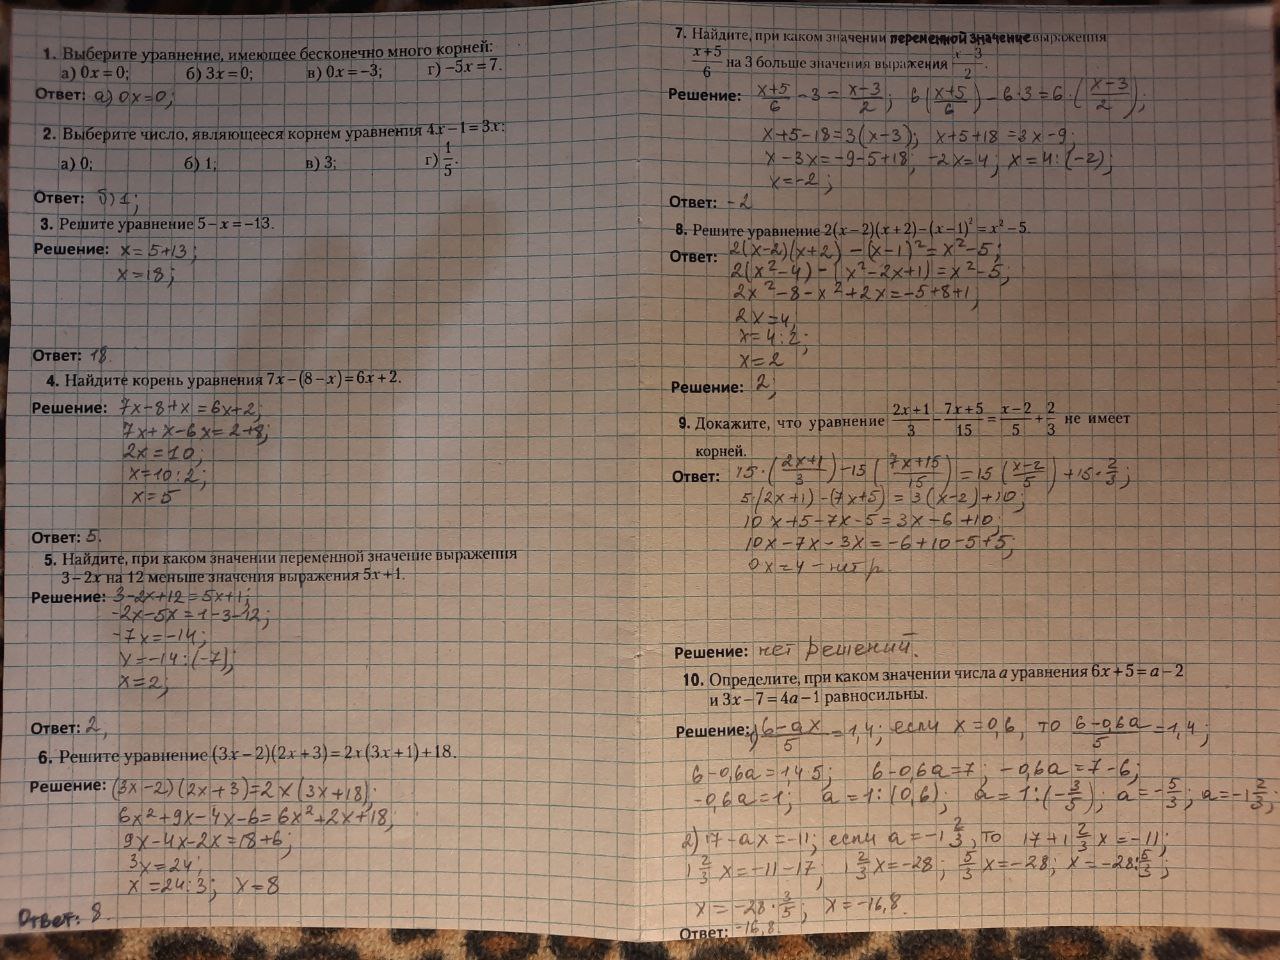 1. Выберите уравнение, имеющее бесконечно много корней:
а) 0x = 0; б) 3x = 0; в) 0x = –3; г) –5x = 7.
Ответ: а) 0x=0;
2. Выберите число, являющееся корнем уравнения 4x – 1 = 3x:
а) 0; б) 1; в) 3; г) 1/5.
Ответ: б) 1;
3. Решите уравнение 5 – x = –13.
Решение: x = 5+13;
x=18;
Ответ: 18.
4. Найдите корень уравнения 7x – (8 – x) = 6x + 2.
Решение: 7x-8+x=6x+2;
7x+x-6x=2+8;
2x=10;
x=10:2;
x=5
Ответ: 5.
5. Найдите, при каком значении переменной значение выражения
3 – 2x на 12 меньше значения выражения 5x + 1.
Решение: 3-2x+12=5x+1;
-2x-5x=1-3-12;
-7x=-14;
x=-14:(-7);
x=2;
Ответ: 2,
6. Решите уравнение (3x – 2)(2x + 3) = 2x(3x + 1) + 18.
Решение: (3x-2)(2x+3)=2x(3x+18);
6x²+9x-4x-6=6x²+2x+18;
9x-4x-2x=18+6;
3x=24;
x=24:3; x=8
Ответ: 8.
7. Найдите, при каком значении переменной значение выражения
(x+5)/6 на 3 больше значения выражения (x–3)/2.
Решение: (x+5)/6 -3 = (x-3)/2; 6((x+5)/6) -6·3=6·((x-3)/2);
x+5-18=3(x-3); x+5+18=3x-9;
x-3x=-9-5+18; -2x=4; x=4:(-2);
x=-2;
Ответ: -2
8. Решите уравнение 2(x – 2)(x + 2) – (x – 1)² = x² – 5.
Ответ: 2(x-2)(x+2)-(x-1)²=x²-5;
2(x²-4)-(x²-2x+1)=x²-5;
2x²-8-x²+2x=-5+8+1;
2x=4;
x=4:2;
x=2
Решение: 2;
9. Докажите, что уравнение (2x+1)/3 – (7x+5)/15 = (x–2)/5 + 2/3 не имеет
корней.
Ответ: 15·((2x+1)/3)-15((7x+15)/15)=15((x-2)/5)+15·2/3;
5(2x+1)-(7x+5)=3(x-2)+10;
10x+5-7x-5=3x-6+10;
10x-7x-3x=-6+10-5+5;
0x=4 – нет р.
Решение: нет решений.
10. Определите, при каком значении числа a уравнения 6x + 5 = a – 2
и 3x – 7 = 4a – 1 равносильны.
Решение: 1) (6-ax)/5=1,4; если x=0,6, то (6-0,6a)/5=1,4;
6-0,6a=1,4·5; 6-0,6a=7; -0,6a=7-6;
-0,6a=1; a=1:(0,6); a=1:(-3/5); a=-5/3; a=-1 2/3;
2) 17-ax=-11; если a=-1 2/3, то 17+1 2/3 x=-11;
1 2/3 x=-11-17; 1 2/3 x=-28; 5/3 x=-28; x=-28:5/3;
x=-28·3/5; x=-16,8.
Ответ: -16,8.